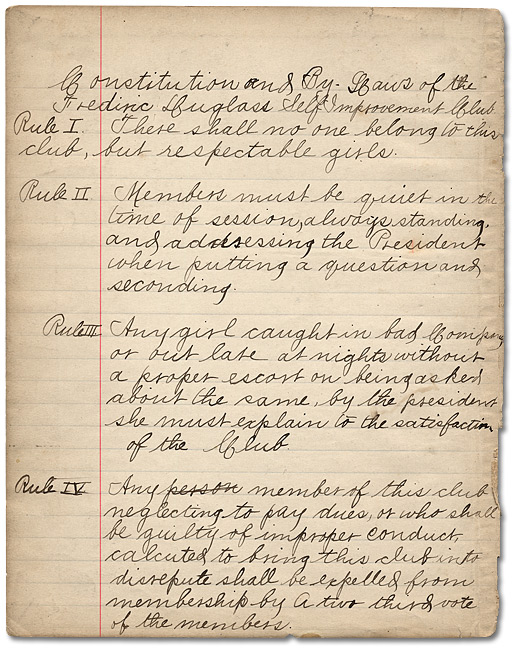 Constitution and By-Laws of the
Fredric Duglass Self Improvement Club
Rule I. There shall no one belong to this
club, but respectable girls.
Rule II Members must be quiet in the
time of session, always standing,
and addsessing the President
when putting a question and
seconding.
Rule III Any girl caught in bad Company
or out late at nights without
a proper escort on being asked
about the same, by the president
she must explain to the satisfaction
of the Club.
Rule IV Any person member of this club
neglecting to pay dues, or who shall
be guilty of improper conduct,
calcuted to bring this club into
disrepute shall be expelled from
membership by a two third vote
of the members.